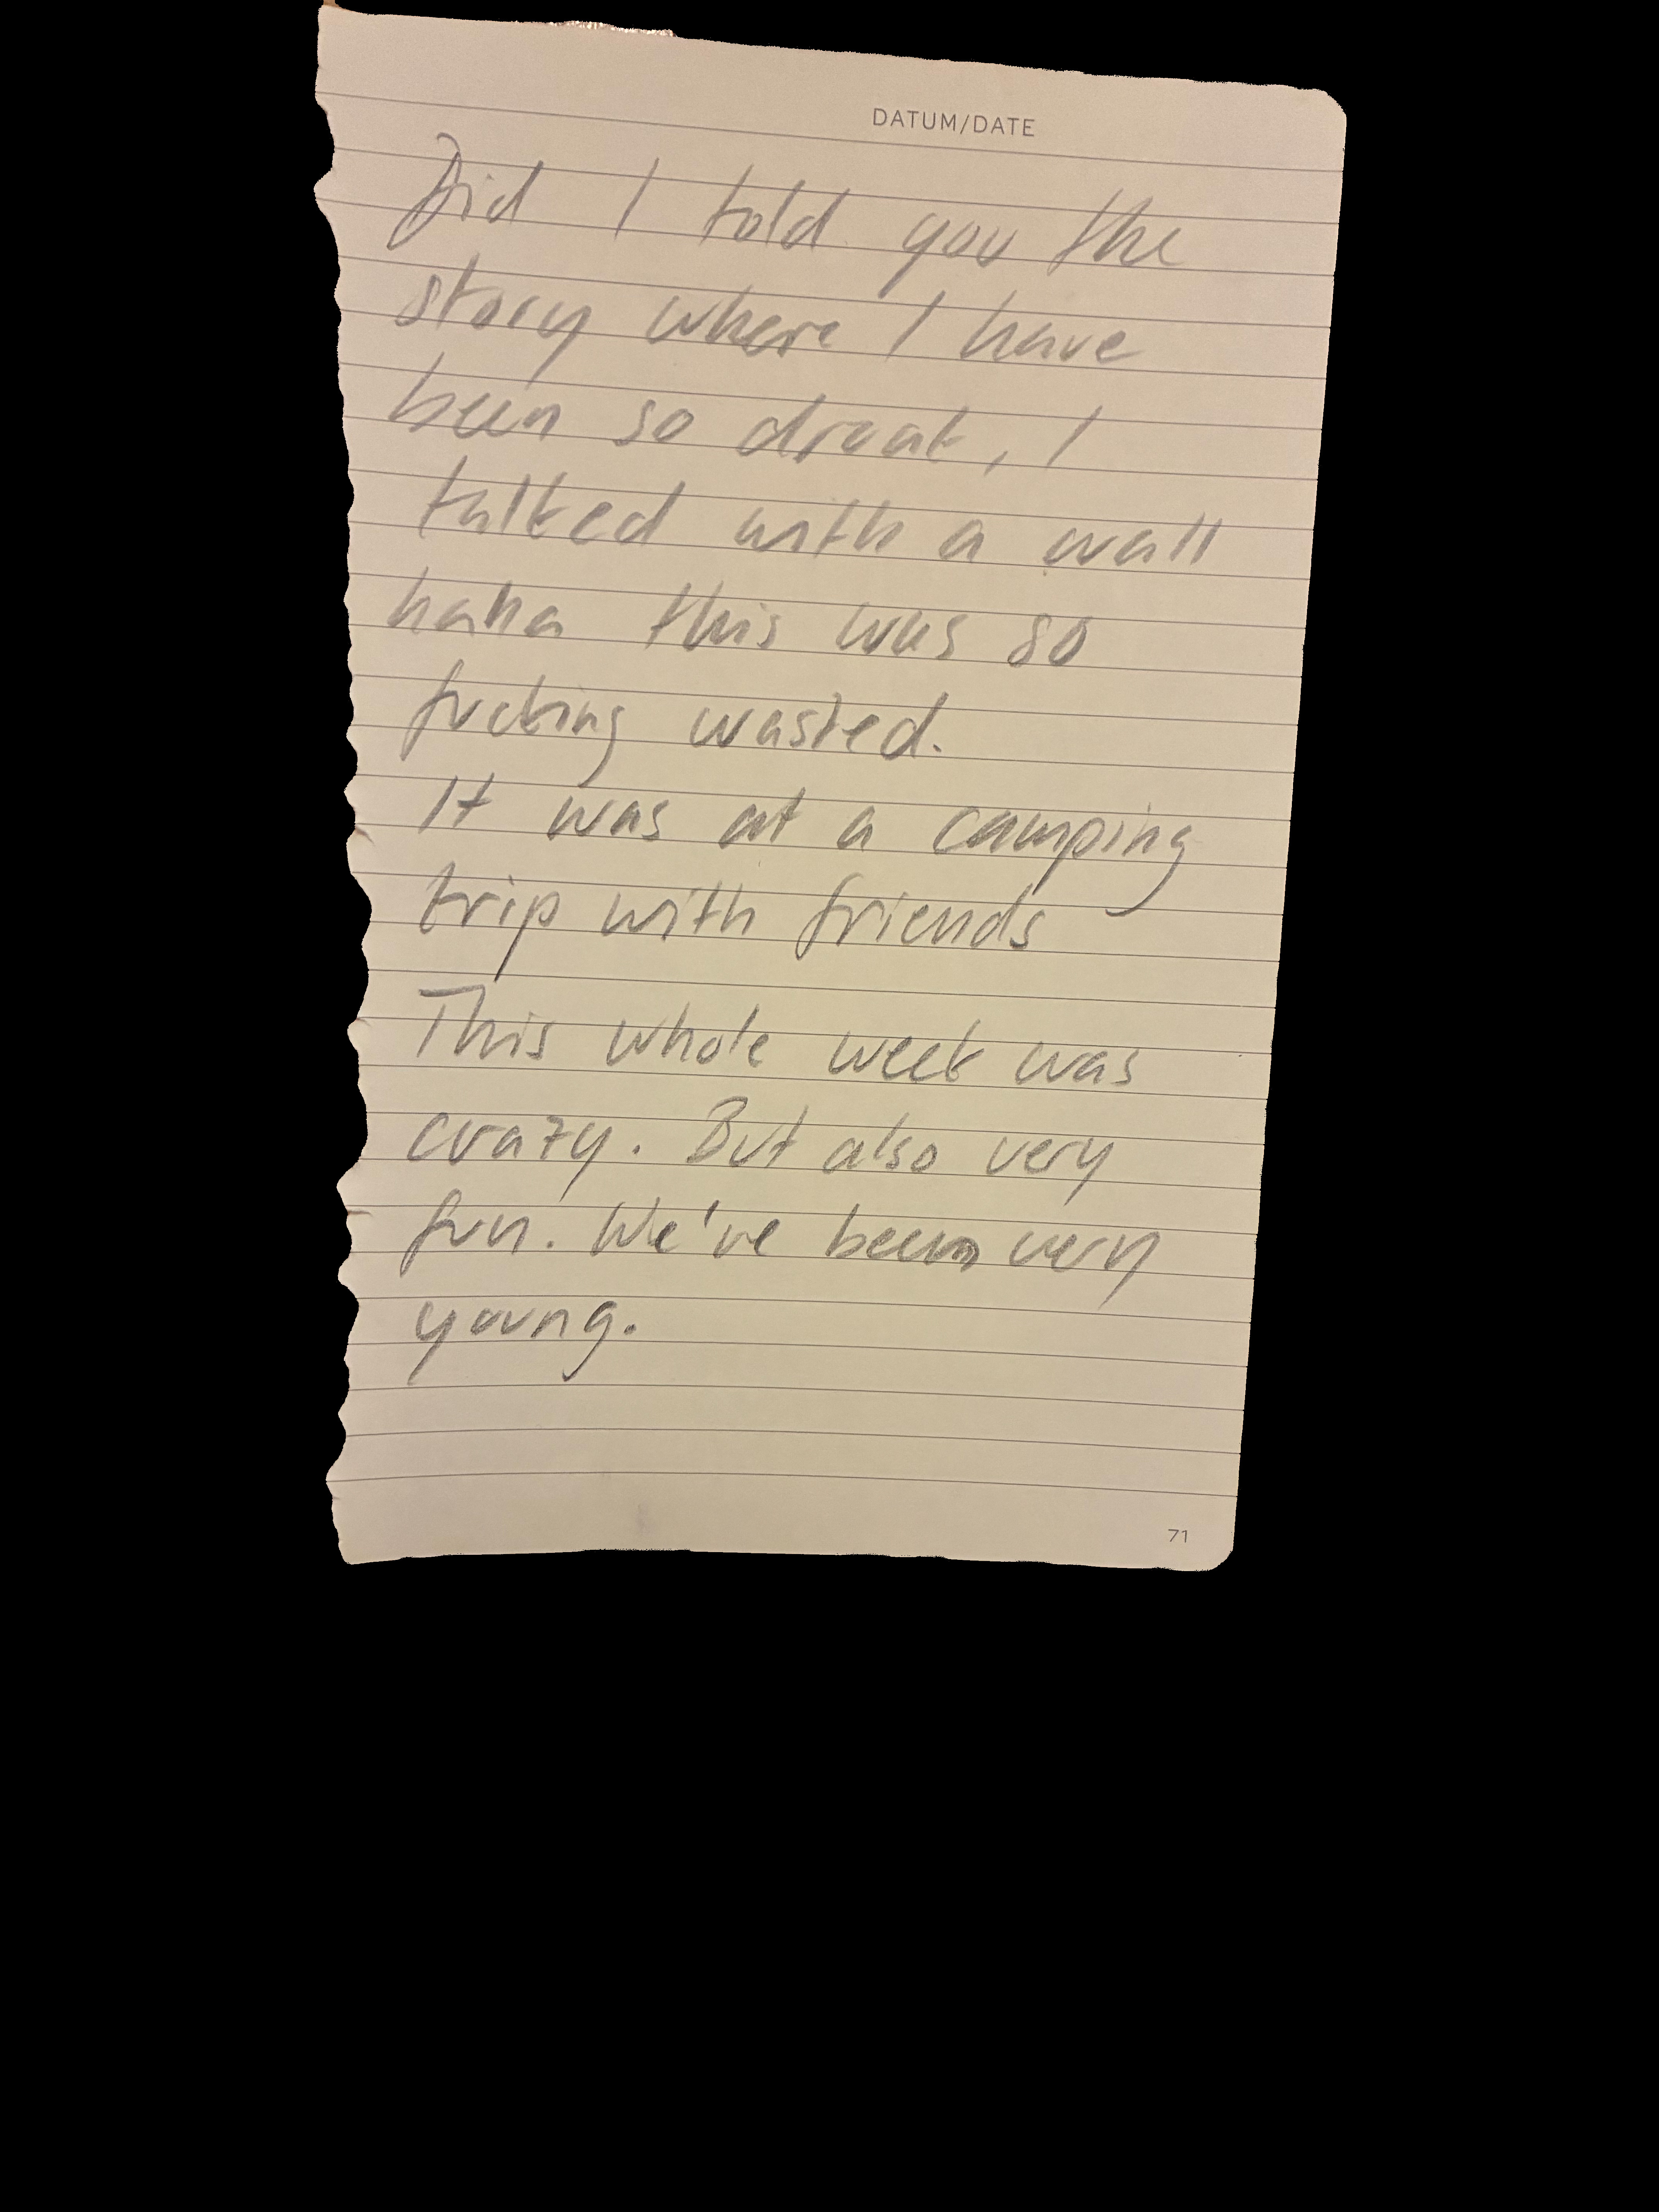 DATUM/DATE
Did I told you the
story where I have
been so drunk, I
talked with a wall
haha this was so
fucking wasted.
It was at a camping
trip with friends
This whole week was
crazy. But also very
fun. We've been very
young.
71